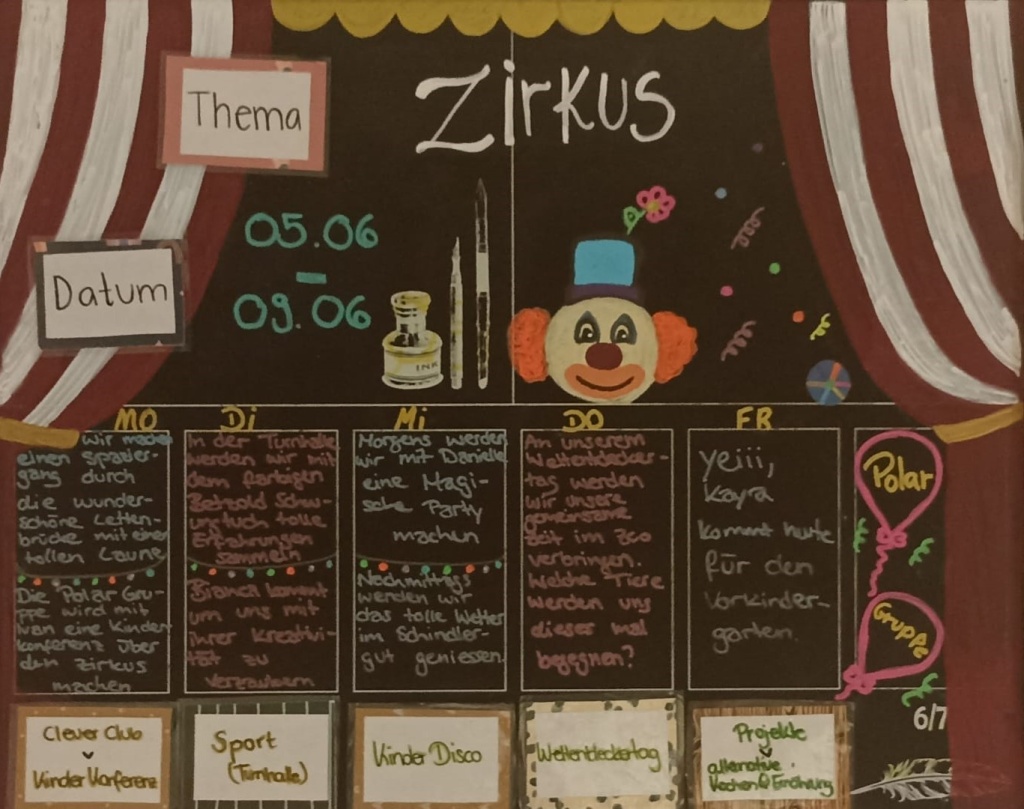 Zirkus
Thema
05.06
-
09.06
Datum
INK
MO
Wir machen
einen Spazier-
gang durch
die wunder-
schöne Letten-
brücke mit einer
tollen Laune
Die Polar Gru-
ppe wird mit
Ivan eine Kinder
konferenz über
den Zirkus
machen
Di
In der Turnhalle
werden wir mit
dem farbigen
Schw-
ungtuch tolle
Erfahrungen
sammeln
Bianca kommt
um uns mit
ihrer Kreativi-
tät zu
verzaubern
Mi
Morgens werden
wir mit Danielle
eine Magi-
sche Party
machen
Nachmittags
werden wir
das tolle Wetter
im Schindler-
gut geniessen
DO
An unserem
Weltentdecker-
tag werden
wir unsere
gemeinsame
Zeit im Zoo
verbringen.
Welche Tiere
werden uns
dieses mal
begegnen?
FR
Yeiii,
Kayra
kommt heute
für den
Vorkinder-
garten.
Polar
Gruppe
Clever Club
Kinder Konferenz
Sport
(Turnhalle)
Kinder Disco
Weltentdeckertag
Projekte
alternative
Kochen & Ernährung
6/7